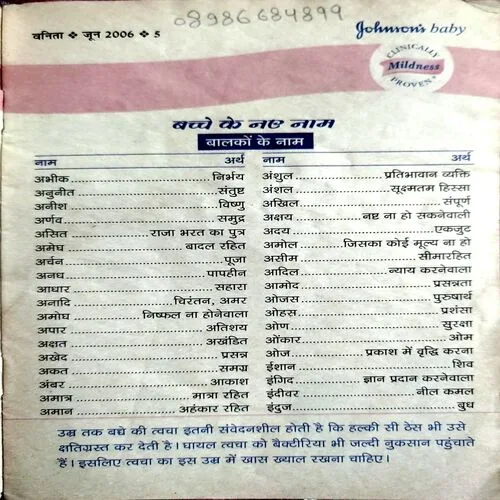 08986684899
वनिता ❖ जून 2006 ❖ 5
Johnson's baby
CLINICALLY
Mildness
PROVEN*
बच्चे के नए नाम
बालकों के नाम
नाम अर्थ नाम अर्थ
अभीक निर्भय अंशुल प्रतिभावान व्यक्ति
अनुनीत संतुष्ट अंशल सूक्ष्मतम हिस्सा
अनीश विष्णु अखिल संपूर्ण
अर्णव समुद्र अक्षय नष्ट ना हो सकनेवाली
असित राजा भरत का पुत्र अदय एकजुट
अमेघ बादल रहित अमोल जिसका कोई मूल्य ना हो
अर्चन पूजा असीम सीमारहित
अनध पापहीन आदिल न्याय करनेवाला
आधार सहारा आमोद प्रसन्नता
अनादि चिरंतन, अमर ओजस पुरुषार्थ
अमोघ निष्फल ना होनेवाला ओहस प्रशंसा
अपार अतिशय ओण सुरक्षा
अक्षत अखंडित ओंकार ओम
अखेद प्रसन्न ओज प्रकाश में वृद्धि करना
अकत समग्र ईशान शिव
अंबर आकाश इंगिद ज्ञान प्रदान करनेवाला
अमात्र मात्रा रहित इंदीवर नील कमल
अमान अहंकार रहित इंदुज बुध
उम्र तक बच्चे की त्वचा इतनी संवेदनशील होती है कि हल्की सी ठेस भी उसे
क्षतिग्रस्त कर देती है। घायल त्वचा को बैक्टीरिया भी जल्दी नुकसान पहुंचाते
हैं। इसलिए त्वचा का इस उम्र में खास ख्याल रखना चाहिए।